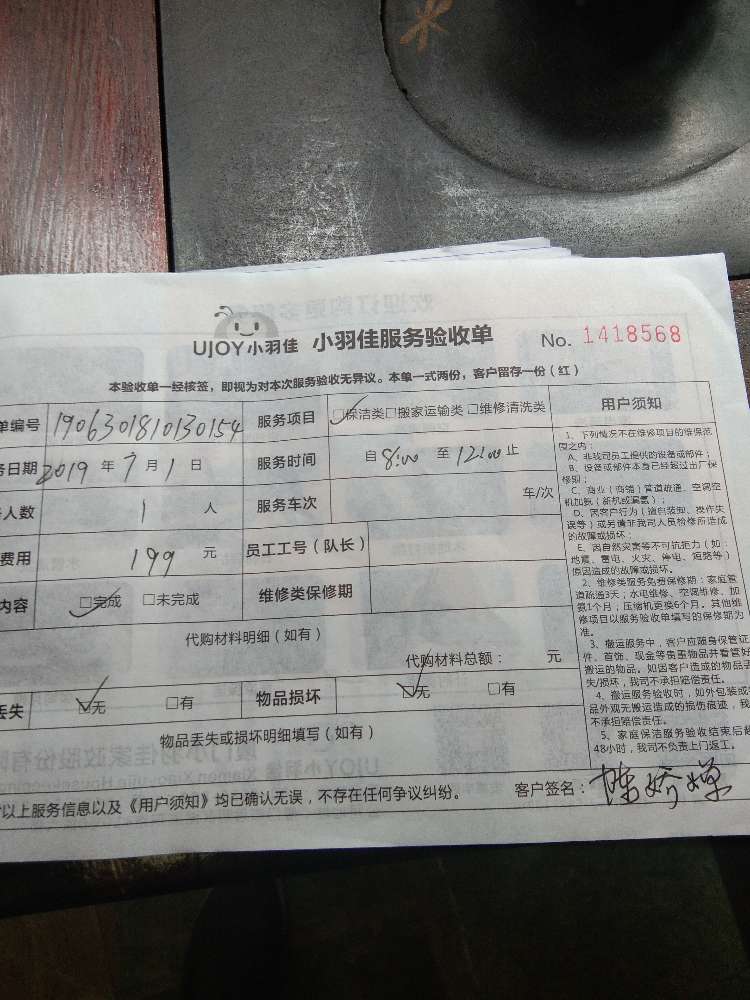 UJOY小羽佳 小羽佳服务验收单 No. 1418568
本验收单一经核签，即视为对本次服务验收无异议。本单一式两份，客户留存一份（红）
单编号 1906301810130154 服务项目 ☑保洁类□搬家运输类□维修清洗类 用户须知
务日期 2019 年 7 月 1 日 服务时间 自 8:00 至 12:00 止
人数 1 人 服务车次 车/次
费用 199 元 员工工号（队长）
内容 ☑完成 □未完成 维修类保修期
代购材料明细（如有）
代购材料总额： 元
丢失 ☑无 □有 物品损坏 ☑无 □有
物品丢失或损坏明细填写（如有）
以上服务信息以及《用户须知》均已确认无误，不存在任何争议纠纷。 客户签名：陈娇婵
1、下列情况不在维修项目的维保范
围之内：
A、非我司员工提供的设备或部件；
B、设备或部件本身已经超过出厂保
修期；
C、商业（商铺）管道疏通、空调空
机加氨（新机或漏氨）；
D、因客户行为（擅自装卸、操作失
误等）或另请非我司人员检修所造成
的故障或损坏。
E、因自然灾害等不可抗拒力（如：
地震、雷电、火灾、停电、短路等）
原因造成的故障或损坏。
2、维修类服务免费保修期：家庭管
道疏通3天；水电维修、空调维修、加
氨1个月；压缩机更换6个月。其他维
修项目以服务验收单填写的保修期为
准。
3、搬运服务中，客户应随身保管证
件、首饰、现金等贵重物品并看管好
搬运的物品。如因客户造成的物品丢
失/损坏，我司不承担赔偿责任。
4、搬运服务验收时，如外包装或
品外观无搬运造成的损伤痕迹，我
不承担赔偿责任。
5、家庭保洁服务验收结束后超
48小时，我司不负责上门返工。